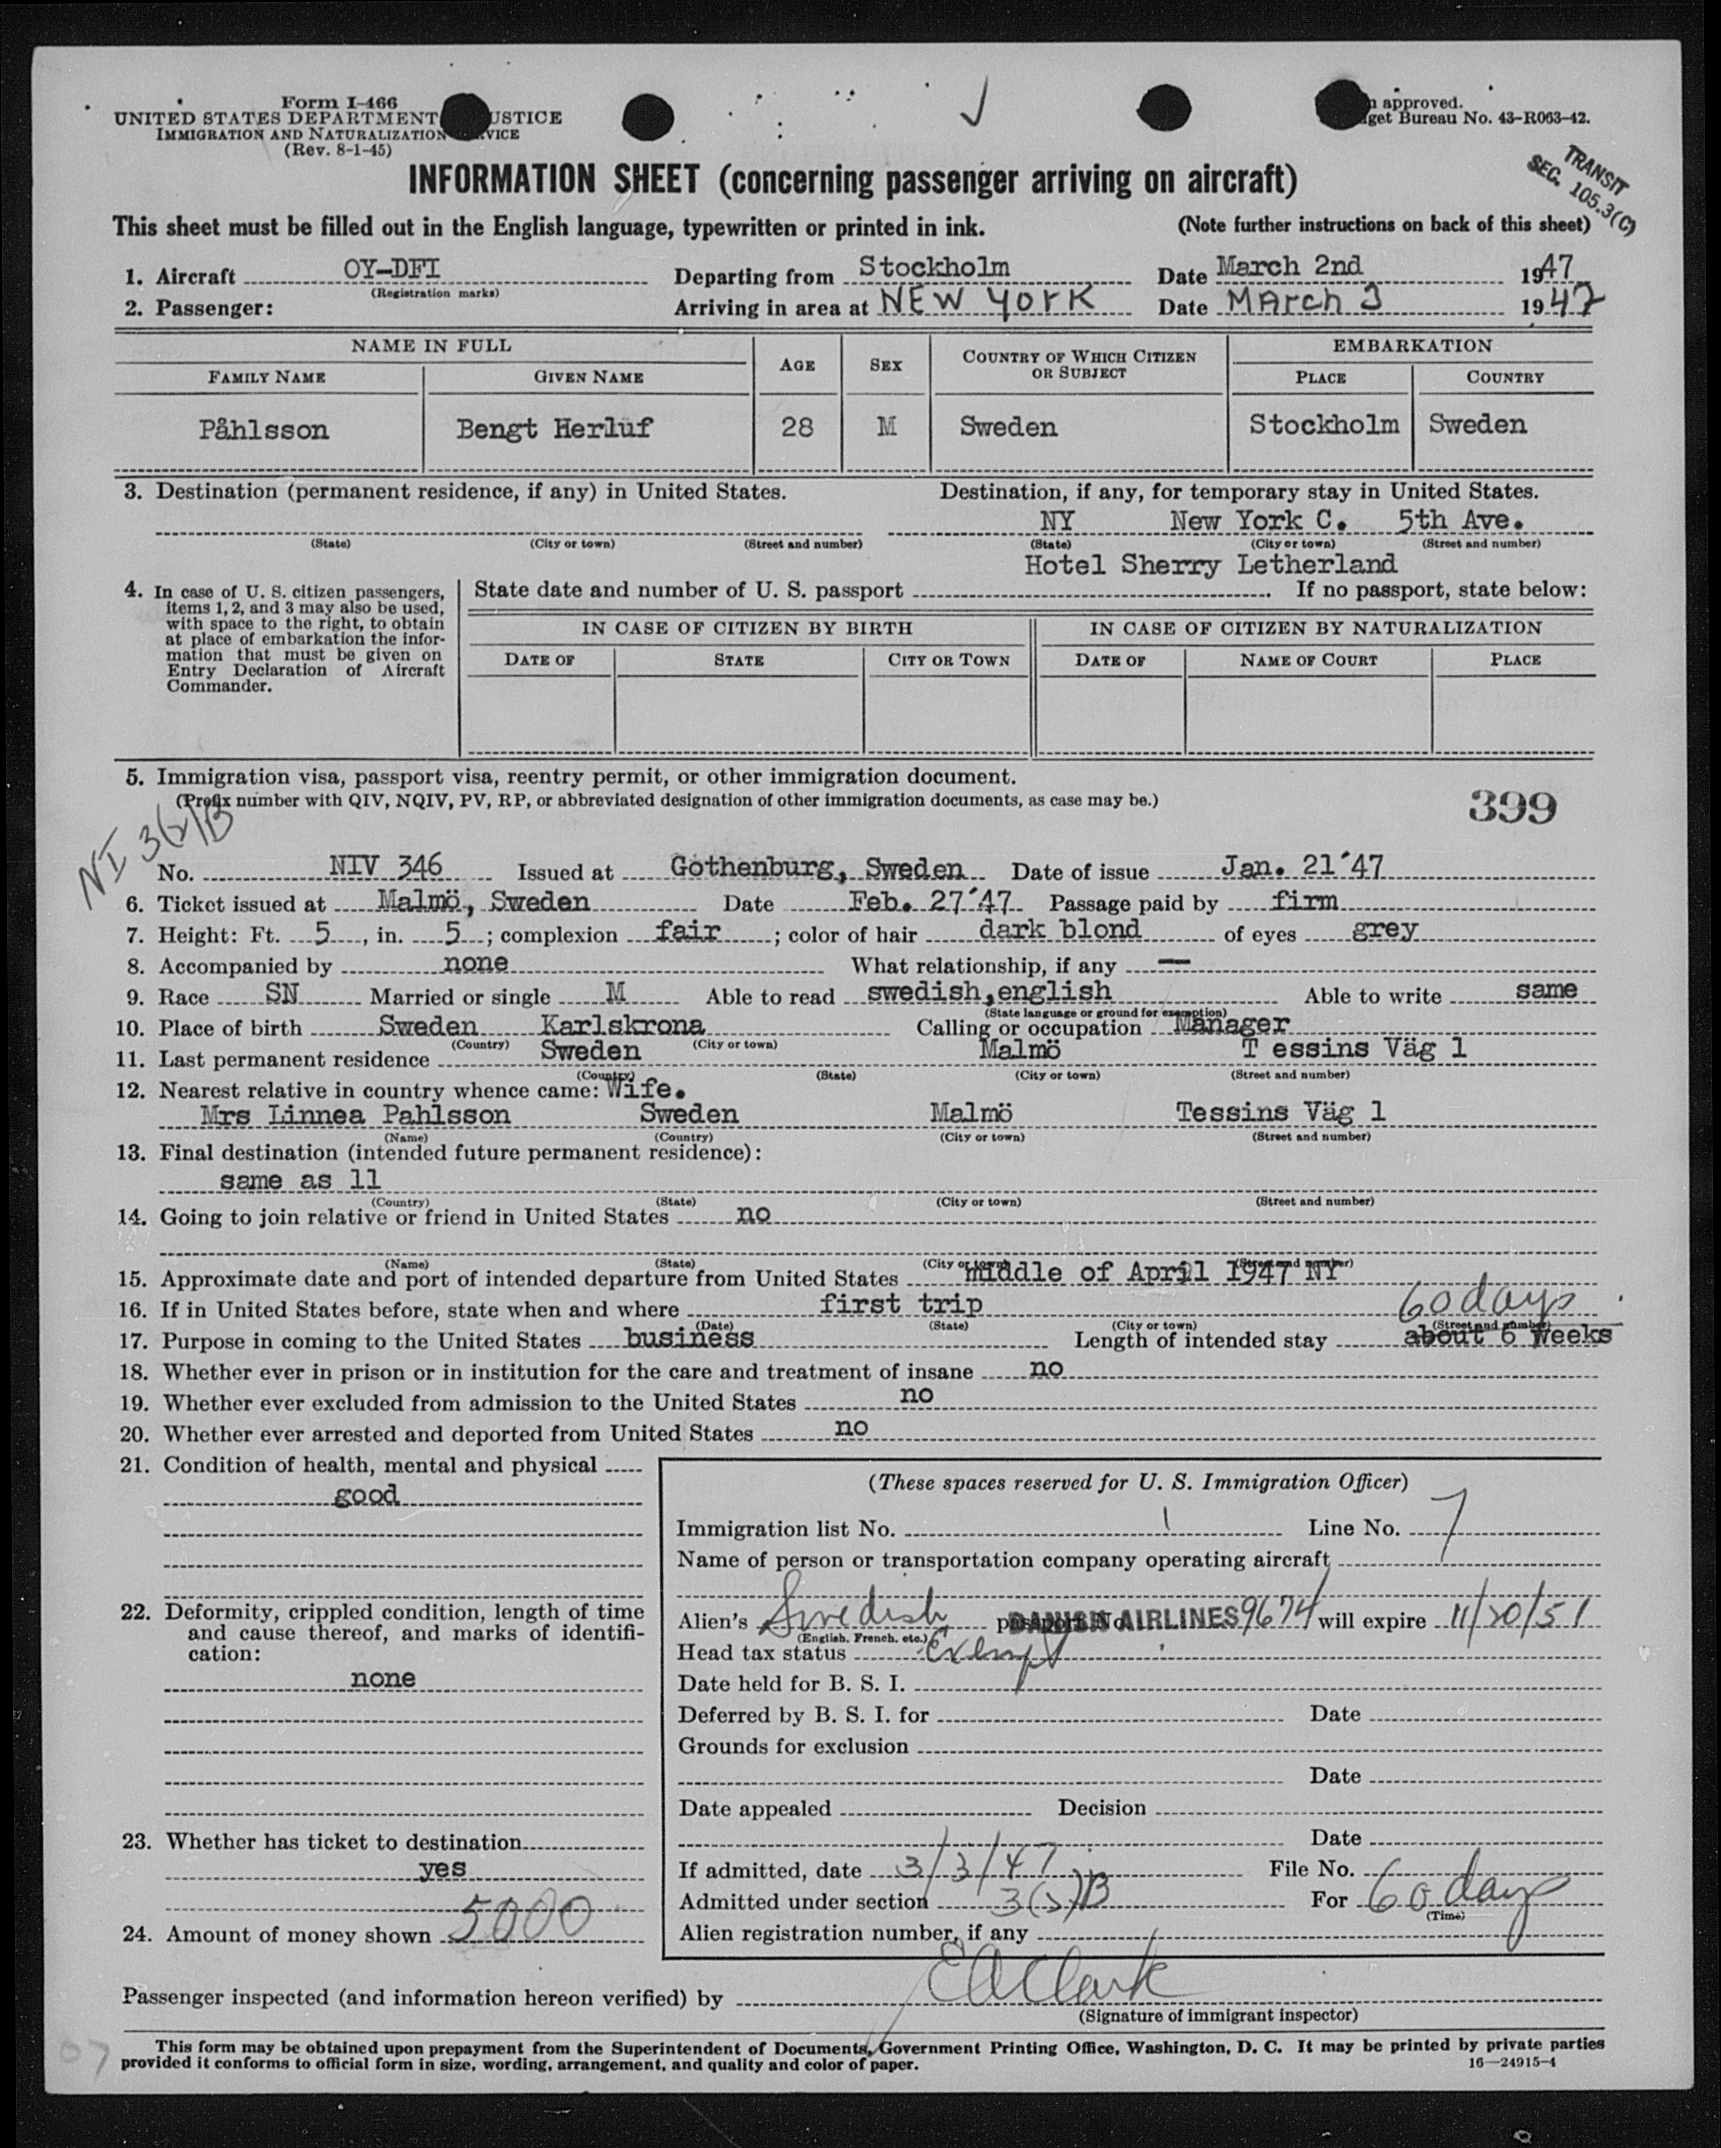 Form I-466
UNITED STATES DEPARTMENT USTICE
IMMIGRATION AND NATURALIZATION VICE
(Rev. 8-1-45)
approved.
get Bureau No. 43-R063-42.
TRANSIT
SEC. 105.3(C)
INFORMATION SHEET (concerning passenger arriving on aircraft)
This sheet must be filled out in the English language, typewritten or printed in ink. (Note further instructions on back of this sheet)
1. Aircraft OY-DFI Departing from Stockholm Date March 2nd 1947
(Registration marks)
2. Passenger: Arriving in area at NEW YORK Date MArch 3 1947
NAME IN FULL AGE SEX COUNTRY OF WHICH CITIZEN OR SUBJECT EMBARKATION
FAMILY NAME GIVEN NAME PLACE COUNTRY
Påhlsson Bengt Herluf 28 M Sweden Stockholm Sweden
3. Destination (permanent residence, if any) in United States. Destination, if any, for temporary stay in United States.
NY New York C. 5th Ave.
(State) (City or town) (Street and number) (State) (City or town) (Street and number)
Hotel Sherry Letherland
4. In case of U. S. citizen passengers, items 1, 2, and 3 may also be used, with space to the right, to obtain at place of embarkation the information that must be given on Entry Declaration of Aircraft Commander.
State date and number of U. S. passport . If no passport, state below:
IN CASE OF CITIZEN BY BIRTH IN CASE OF CITIZEN BY NATURALIZATION
DATE OF STATE CITY OR TOWN DATE OF NAME OF COURT PLACE
5. Immigration visa, passport visa, reentry permit, or other immigration document.
(Prefix number with QIV, NQIV, PV, RP, or abbreviated designation of other immigration documents, as case may be.)
399
NI 3(2)B
No. NIV 346 Issued at Gothenburg, Sweden Date of issue Jan. 21´47
6. Ticket issued at Malmö, Sweden Date Feb. 27´47 Passage paid by firm
7. Height: Ft. 5, in. 5; complexion fair; color of hair dark blond of eyes grey
8. Accompanied by none What relationship, if any —
9. Race SN Married or single M Able to read swedish,english Able to write same
(State language or ground for exemption)
10. Place of birth Sweden Karlskrona Calling or occupation Manager
(Country) (City or town)
11. Last permanent residence Sweden Malmö T essins Väg 1
(Country) (State) (City or town) (Street and number)
12. Nearest relative in country whence came: Wife.
Mrs Linnea Pahlsson Sweden Malmö Tessins Väg 1
(Name) (Country) (City or town) (Street and number)
13. Final destination (intended future permanent residence):
same as 11
(Country) (State) (City or town) (Street and number)
14. Going to join relative or friend in United States no
(Name) (State) (City or town) (Street and number)
15. Approximate date and port of intended departure from United States middle of April 1947 NY
16. If in United States before, state when and where first trip
(Date) (State) (City or town) (Street and number)
60 days
17. Purpose in coming to the United States business Length of intended stay about 6 weeks
18. Whether ever in prison or in institution for the care and treatment of insane no
19. Whether ever excluded from admission to the United States no
20. Whether ever arrested and deported from United States no
21. Condition of health, mental and physical
good
22. Deformity, crippled condition, length of time and cause thereof, and marks of identification:
none
23. Whether has ticket to destination
yes
24. Amount of money shown 5000
(These spaces reserved for U. S. Immigration Officer)
Immigration list No. 1 Line No. 7
Name of person or transportation company operating aircraft
DANISH AIRLINES
Alien's Swedish passport No. 9674 will expire 11/20/51
(English, French, etc.)
Head tax status Exempt
Date held for B. S. I.
Deferred by B. S. I. for Date
Grounds for exclusion
Date
Date appealed Decision
Date
If admitted, date 3/3/47 File No.
Admitted under section 3(2)B For 60 days
(Time)
Alien registration number, if any
Passenger inspected (and information hereon verified) by EA Clark
(Signature of immigrant inspector)
This form may be obtained upon prepayment from the Superintendent of Documents, Government Printing Office, Washington, D. C. It may be printed by private parties
provided it conforms to official form in size, wording, arrangement, and quality and color of paper.
16—24915-4
07